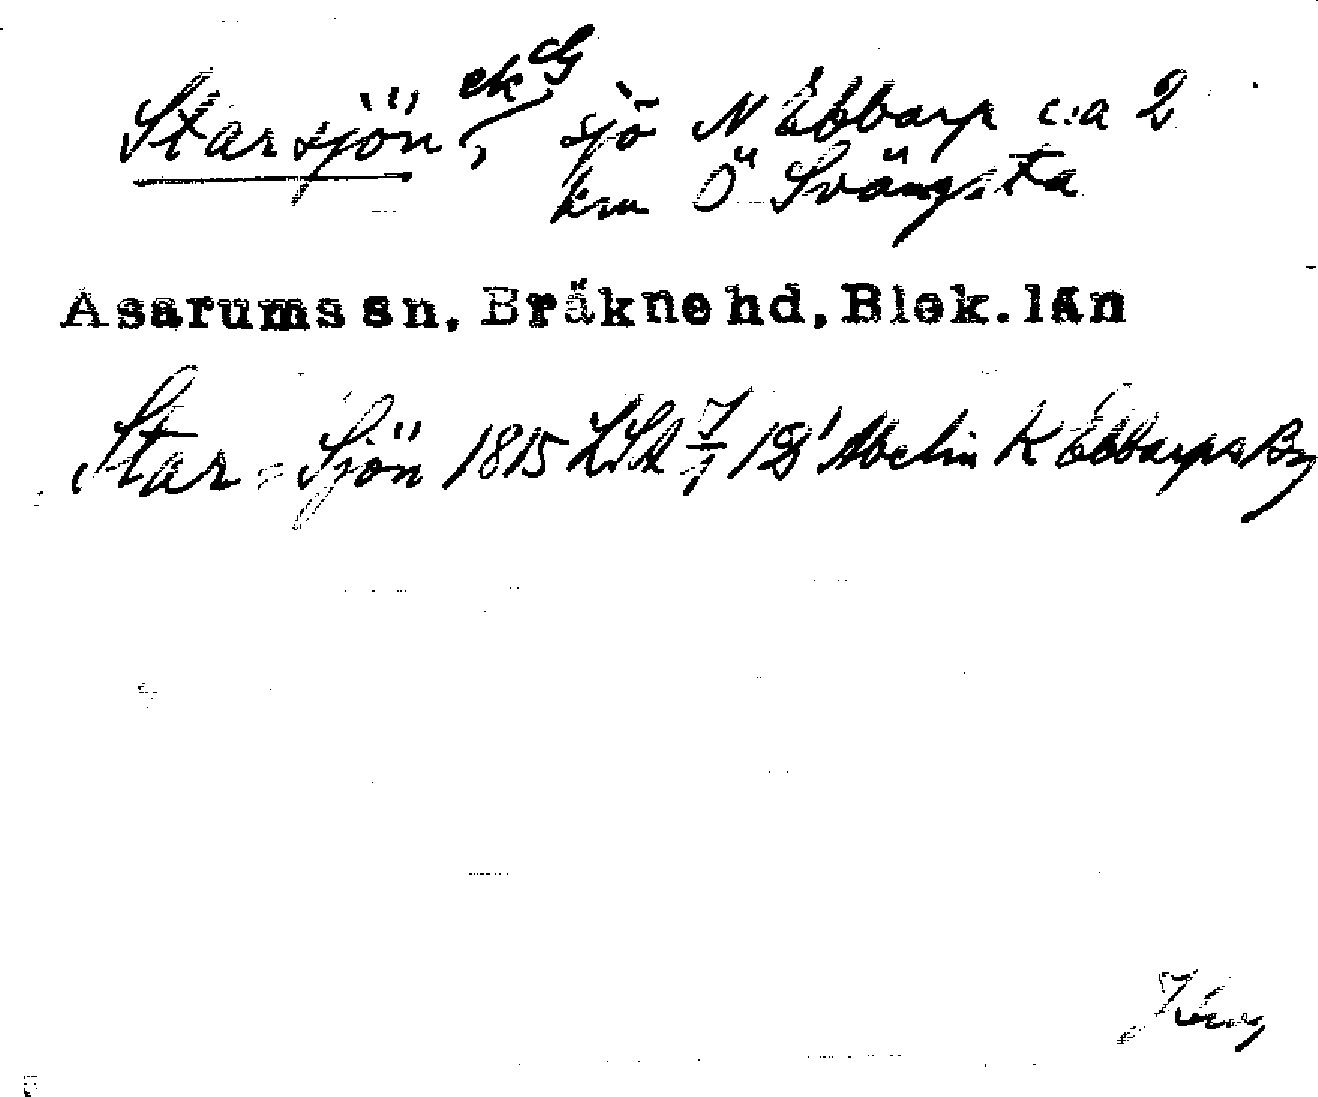 Starsjön, ek G sjö N Ebbarp c:a 2
km Ö Svängsta
Asarums sn, Bräkne hd, Blek. län
Star-Sjön 1815 LSA 7/1 K Ebbarps By